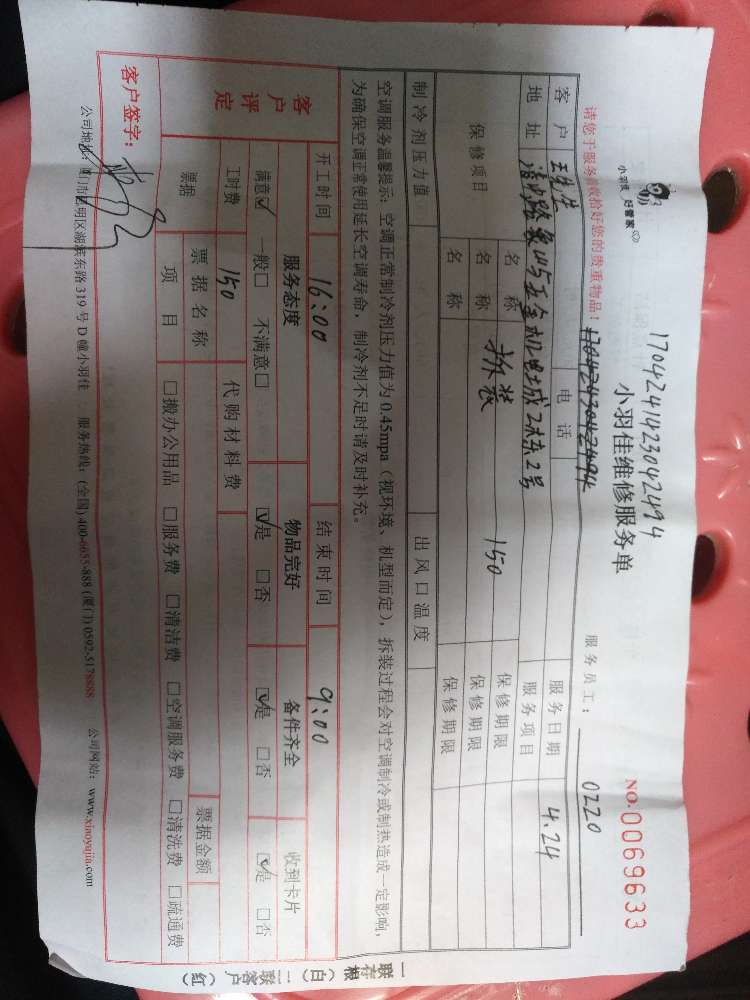 1704241423042494
小羽佳 好管家
小羽佳维修服务单
NO.0069633
请您于服务前收拾好您的贵重物品！
服务员工：
0220
客户 王先生 电话 服务日期 4.24
地址 服务项目
保修项目 名称 拆装 150 保修期限
名称 保修期限
名称 保修期限
制冷剂压力值 出风口温度
空调服务温馨提示：空调正常制冷剂压力值为0.45mpa（视环境、机型而定），拆装过程会对空调制冷或制热造成一定影响，
为确保空调正常使用延长空调寿命，制冷剂不足时请及时补充。
开工时间 16:00 结束时间 9:00
客户评定 服务态度 物品完好 备件齐全 收到卡片
满意☑ 一般□ 不满意□ ☑是 □否 ☑是 □否 ☑是 □否
工时费 150 代购材料费
票据 票据名称 票据金额
项目 □搬办公用品 □服务费 □清洁费 □空调服务费 □清洗费 □疏通费
客户签字：
公司地址：厦门市思明区湖滨东路319号D幢小羽佳 服务热线：(全国)400-6655-888 (厦门)0592-5178888 公司网站：www.xiaoyujia.com
一联存根（白）二联客户（红）